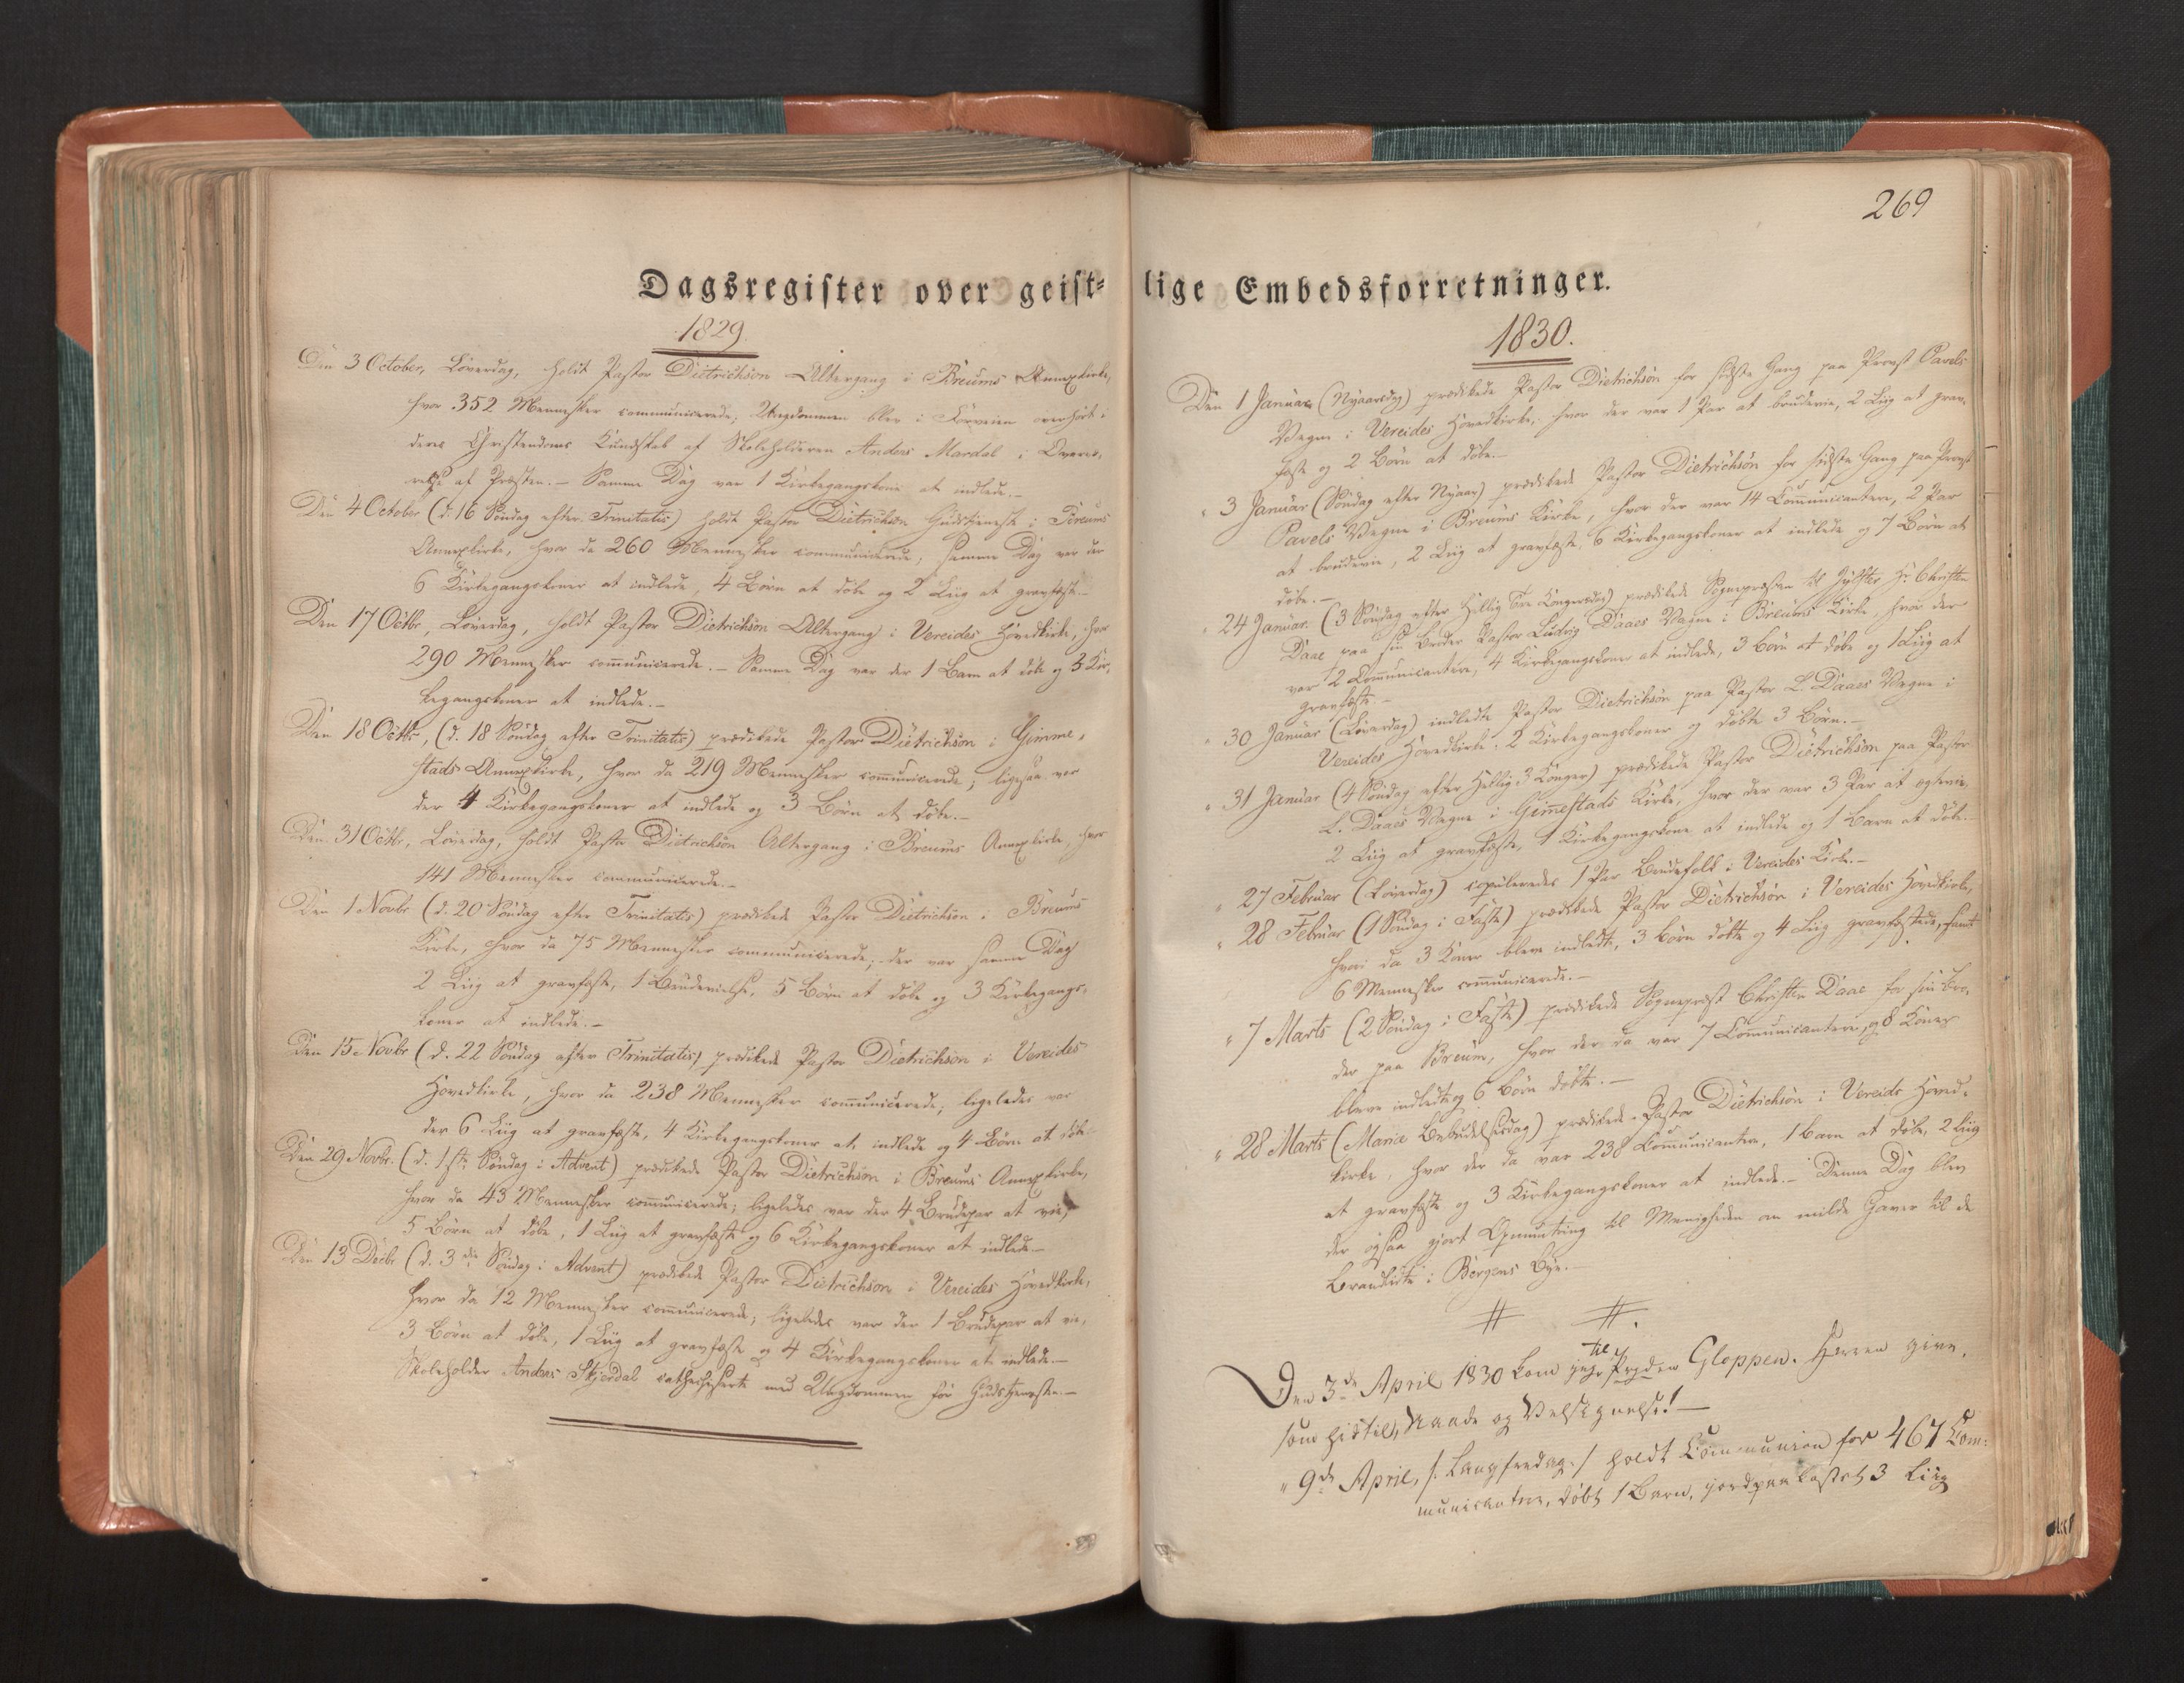 269
Dagsregister over geist-
1829.
Den 3 October, Löverdag, holdt Pastor Dietrichson Altergang i Breums Annexkirke,
hvor 352 Mennesker communicerede; Ungdommen blev i Korveien overhørt i
deres Christendoms Kundskab af Skoleholderen Anders Mardal i Overvæ,
relse af Præsten. – Samme Dag var 1 Kirkegangskone at indlede. –
Den 4 October (d. 16 Söndag efter Trinitatis) holdt Pastor Dietrichson Gudstjeneste i Breums
Annexkirke, hvor da 260 Mennesker communicerede; samme Dag var der
6 Kirkegangskoner at indlede, 4 Börn at döbe og 2 Liig at gravfæste. –
Den 17 Octbr, Löverdag, holdt Pastor Dietrichson Altergang i Vereides Hovedkirke, hvor
290 Mennesker communicerede. – Samme Dag var der 1 Barn at döbe og 3 Kir,
kegangskoner at indlede. –
Den 18 Octbr, (d. 18 Söndag efter Trinitatis) prædikede Pastor Dietrichson i Gimme,
stads Annexkirke, hvor da 219 Mennesker communicerede; ligesaa var
der 4 Kirkegangskoner at indlede og 3 Börn at döbe. –
Den 31 Octbr, Löverdag, holdt Pastor Dietrichson Altergang i Breums Annexkirke, hvor
141 Mennesker communicerede. –
Den 1 Novbr (d. 20 Söndag efter Trinitatis) prædikede Pastor Dietrichson i Breums
Kirke, hvor da 75 Mennesker communicerede; der var samme Dag
2 Liig at gravfæste, 1 Brudevielse, 5 Börn at döbe og 3 Kirkegangs,
koner at indlede. –
Den 15 Novbr (d. 22 Söndag efter Trinitatis) prædikede Pastor Dietrichson i Vereides
Hovedkirke, hvor da 238 Mennesker communicerede; ligeledes var
der 6 Liig at gravfæste, 4 Kirkegangskoner at indlede og 4 Börn at döbe
Den 29 Novbr. (d. 1ste Söndag i Advent) prædikede Pastor Dietrichson i Breums Annexkirke,
hvor da 43 Mennesker communicerede; ligeledes var der 4 Brudepar at vie,
5 Börn at döbe, 1 Liig at gravfæste og 6 Kirkegangskoner at indlede. –
Den 13 Decbr (d. 3die Söndag i Advent) prædikede Pastor Dietrichson i Vereides Hovedkirke,
hvor da 12 Mennesker communicerede; ligeledes var der 1 Brudepar at vie,
3 Börn at döbe, 1 Liig at gravfæste og 4 Kirkegangskoner at indlede. –
Skoleholder Anders Skjerdal cathechiserte med Ungdommen før Gudstjenesten. –
lige Embedsforretninger.
1830.
Den 1 Januar (Nyaarsdag) prædikede Pastor Dietrichson for sidste Gang paa Provst Pavels
Vegne i Vereides Hovedkirke; hvor der var 1 Par at brudevie, 2 Liig at grav,
fæste og 2 Börn at döbe. –
" 3 Januar (Söndag efter Nyaar) prædikede Pastor Dietrichson for sidste Gang paa Provst
Pavels Vegne i Breums Kirke, hvor der var 14 Communicantere, 2 Par
at brudevie, 2 Liig at gravfæste, 6 Kirkegangskoner at indlede og 7 Börn at
döbe. –
" 24 Januar (3 Söndag efter Hellig Tre Kongersdag) prædikede Sognepræsten til Hr Christen
Daae paa sin Broder Pastor Ludvig Daaes Vegne i Breums Kirke, hvor der
var 2 Communicantere, 4 Kirkegangskoner at indlede, 3 Börn at döbe og 1 Liig at
gravfæste. –
" 30 Januar (Löverdag) indledte Pastor Dietrichson paa Pastor L. Daaes Vegne i
Vereides Hovedkirke 2 Kirkegangskoner og döbte 3 Börn. –
" 31 Januar (4 Söndag efter Hellig 3 Konger) prædikede Pastor Dietrichson paa Pastor
L. Daaes Vegne i Gimestads Kirke, hvor der var 3 Par at ægtevie,
2 Liig at gravfæste, 1 Kirkegangskone at indlede og 1 Barn at döbe. –
" 27 Februar (Löverdag) copuleredes 1 Par Brudefolk i Vereides Kirke. –
" 28 Februar (1 Söndag i Faste) prædikede Pastor Dietrichson i Vereides Hovedkirke,
hvori da 3 Koner bleve indledte, 3 Börn döbte og 4 Liig gravfæstede, samt
6 Mennesker communicerede. –
" 7 Marts (2 Söndag i Faste) prædikede Sognepræst Christen Daae for sin Bro,
der paa Breum, hvor der da var 7 Communicantere, og 8 Koner
bleve indledte og 6 Börn döbte. –
" 28 Marts (Mariæ Bebudelsesdag) prædikede Pastor Dietrichson i Vereids Hoved,
kirke, hvor der da var 238 Communicantere, 1 Barn at döbe, 2 Liig
at gravfæste og 3 Kirkegangskoner at indlede. – Denne Dag blev
der ogsaa gjort Opmuntring til Menigheden om milde Gaver til de
Brandlidte i Bergens Bye. –
# #.
Den 3de April 1830 kom jeg til Gloppen. Herren give,
som hidtil, Naade og Velsignelse! –
" 9de April, /: Langfredag :/ holdt Communion for 467 Com:
municantere, döbt 1 Barn, jordpaakastet 3 Liig